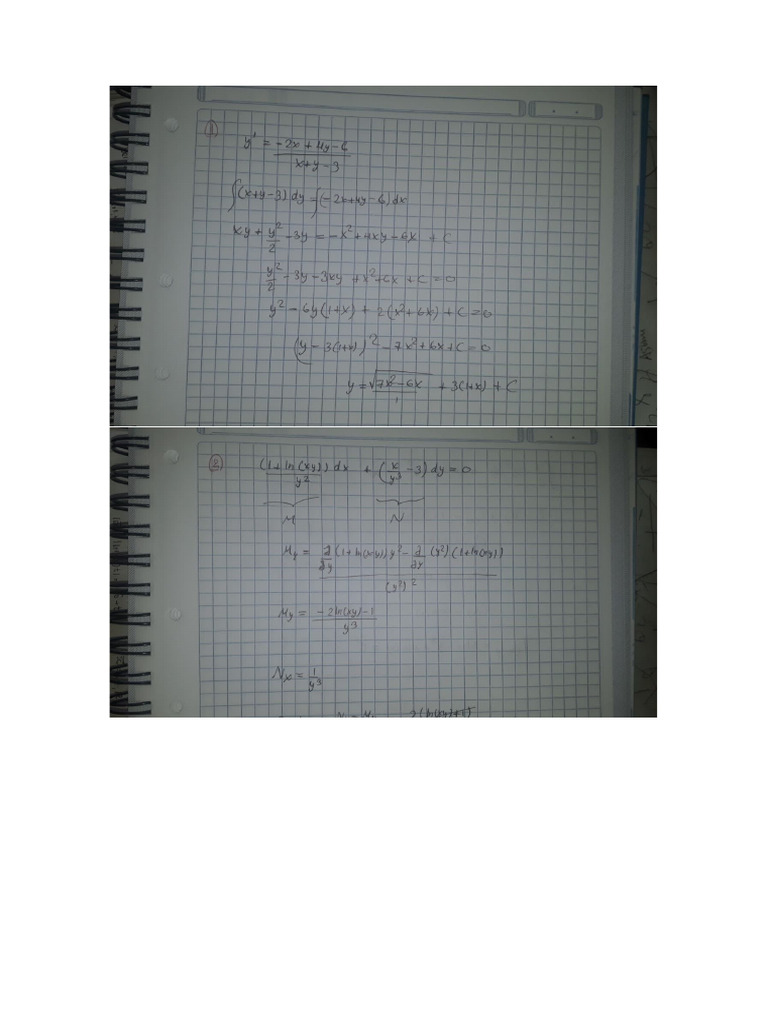 1
y' = -2x + 4y - 6 / x + y - 3
∫(x+y-3) dy = ∫(-2x+4y-6) dx
xy + y²/2 - 3y = -x² + 4xy - 6x + C
y²/2 - 3y - 3xy + x² + 6x + C = 0
y² - 6y(1+x) + 2(x² + 6x) + C = 0
(y - 3(1+x))² - 7x² + 6x + C = 0
y = √7x² - 6x + 3(1+x) + C
2
(1 + ln(xy)) / y² dx + (x/y³ - 3) dy = 0
M N
My = ∂/∂y (1 + ln(xy)) y² - ∂/∂y (y²) (1 + ln(xy)) / (y²)²
My = -2ln(xy) - 1 / y³
Nx = 1/y³